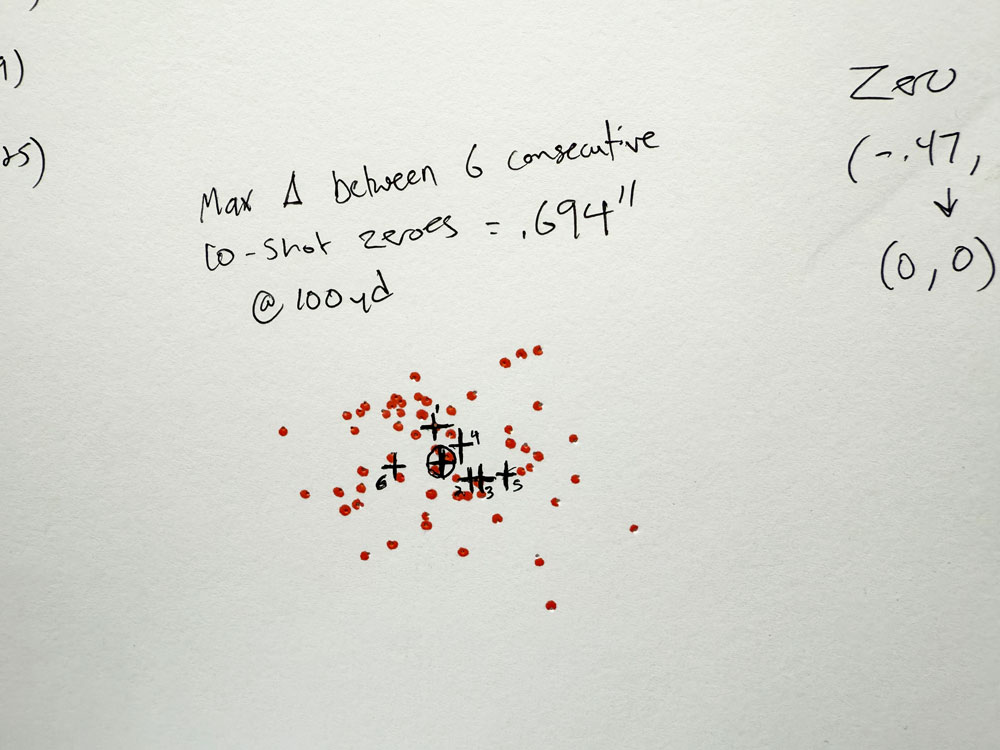 9)
25)
Max Δ between 6 consecutive
10-shot zeroes = .694"
@ 100 yd
Zero
(-.47,
↓
(0, 0)
1
4
6
2
3
5